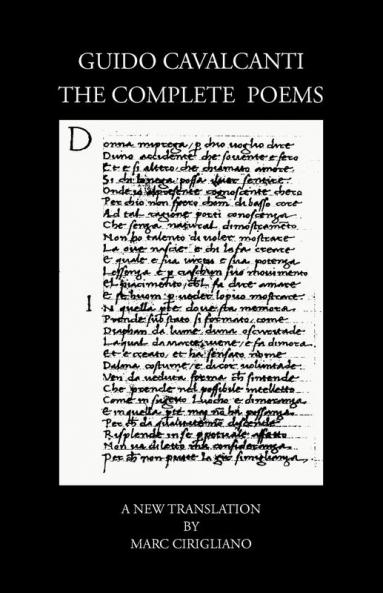 GUIDO CAVALCANTI
THE COMPLETE POEMS
Donna mi prega, p chio voglio dire
Duno accidente che sovente e fero
Et e si altero che chiamato amore
Si chi lo nega possa sentire
Onde presente cognoscente chero
Per chio non spero chom di basso core
Ad tal ragione porti conoscenza
Che senza natural dimostramento
Non ho talento di voler mostrare
La ove nasce e chi lo fa creare
E quale e sua virtu e sua potenza
Lessenza e ciaschun suo movimento
El piacimento che l fa dire amare
E se huom p veder lo puo mostrare
I N quella pte dove sta memora
Prende suo stato si formato come
Diaphan da lume duna oscuritade
Laqual da marte vene e fa dimora
Et e creato et ha sensato nome
Dalma costume e di cor voluntade
Ven da veduta forma che sintende
Che prende nel possibile intelletto
Come in subgetto luocho e dimoranza
E in quella pte mai no ha possanza
Per ch da qualitate no discende
Risplende in se perpetuale effetto
Non ha diletto ma consideranza
Per ch non pote la gir simiglianza
A NEW TRANSLATION
BY
MARC CIRIGLIANO